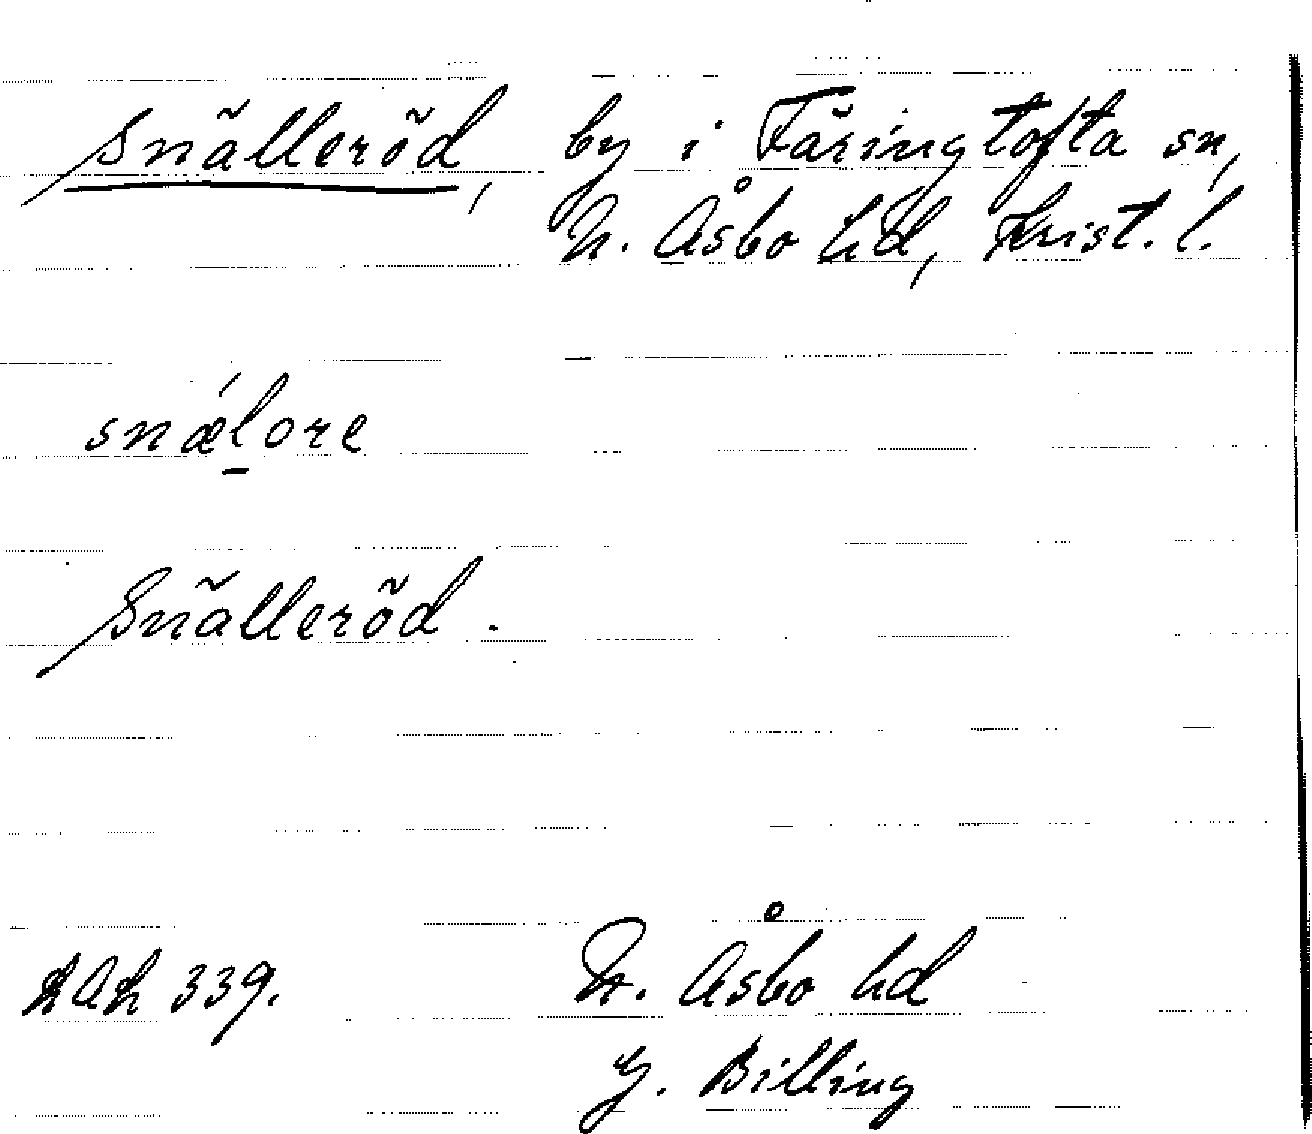 Snälleröd, by i Färingtofta sn,
N. Åsbo hd, Krist. l.
snǽl̠ore
Snälleröd.
N. Åsbo hd
339.
G. Billing